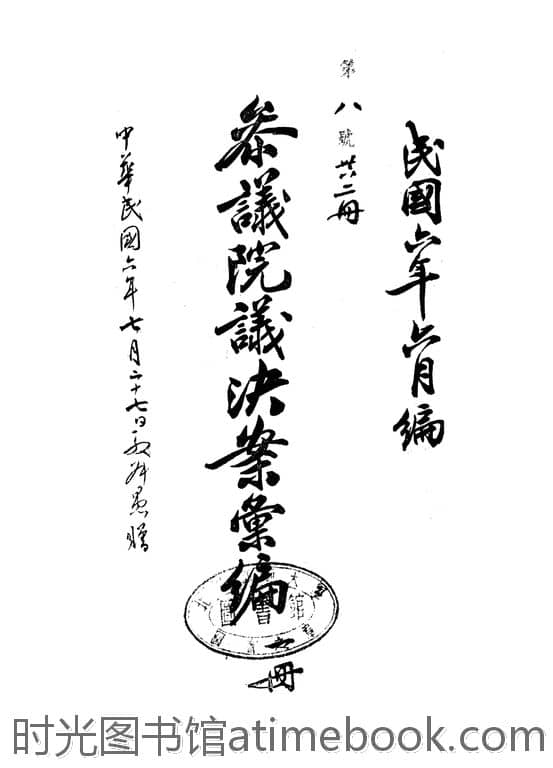 民國六年六月編
第八號共二冊
叅議院議決案彙編
冊
中華民國六年七月二十七日愚贈
圖書館
时光图书馆atimebook.com